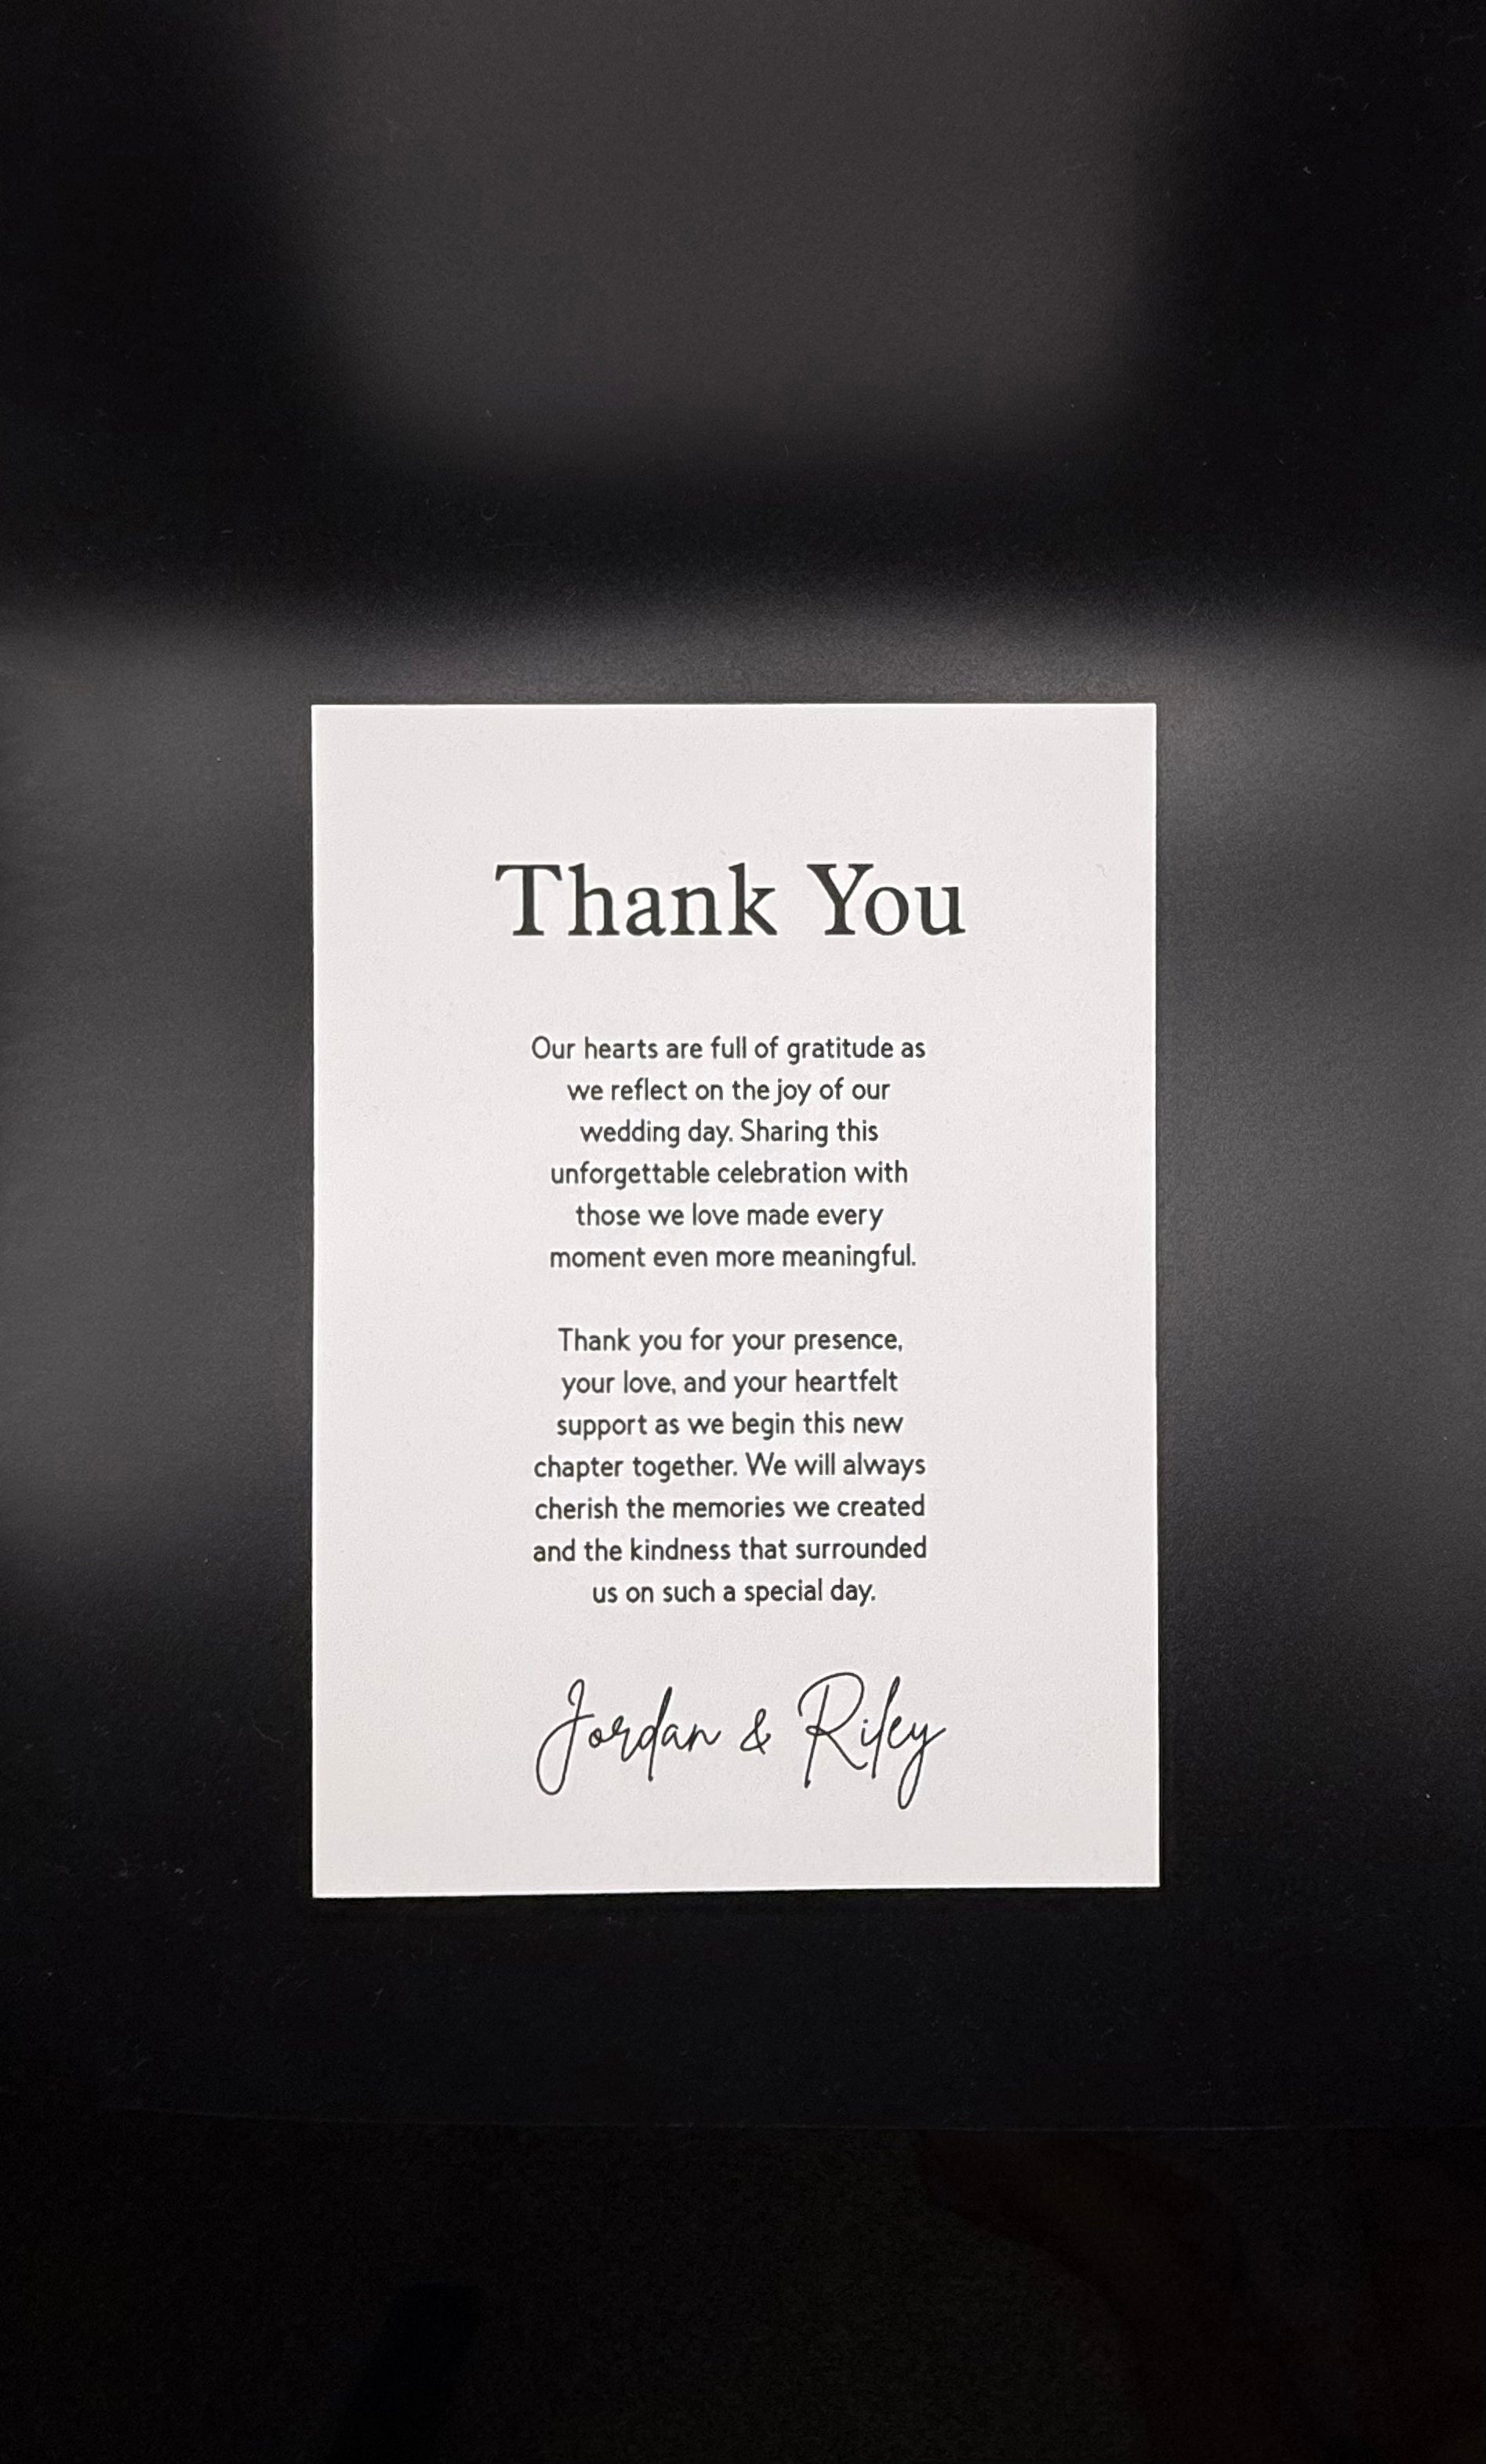 Thank You
Our hearts are full of gratitude as
we reflect on the joy of our
wedding day. Sharing this
unforgettable celebration with
those we love made every
moment even more meaningful.
Thank you for your presence,
your love, and your heartfelt
support as we begin this new
chapter together. We will always
cherish the memories we created
and the kindness that surrounded
us on such a special day.
Jordan & Riley